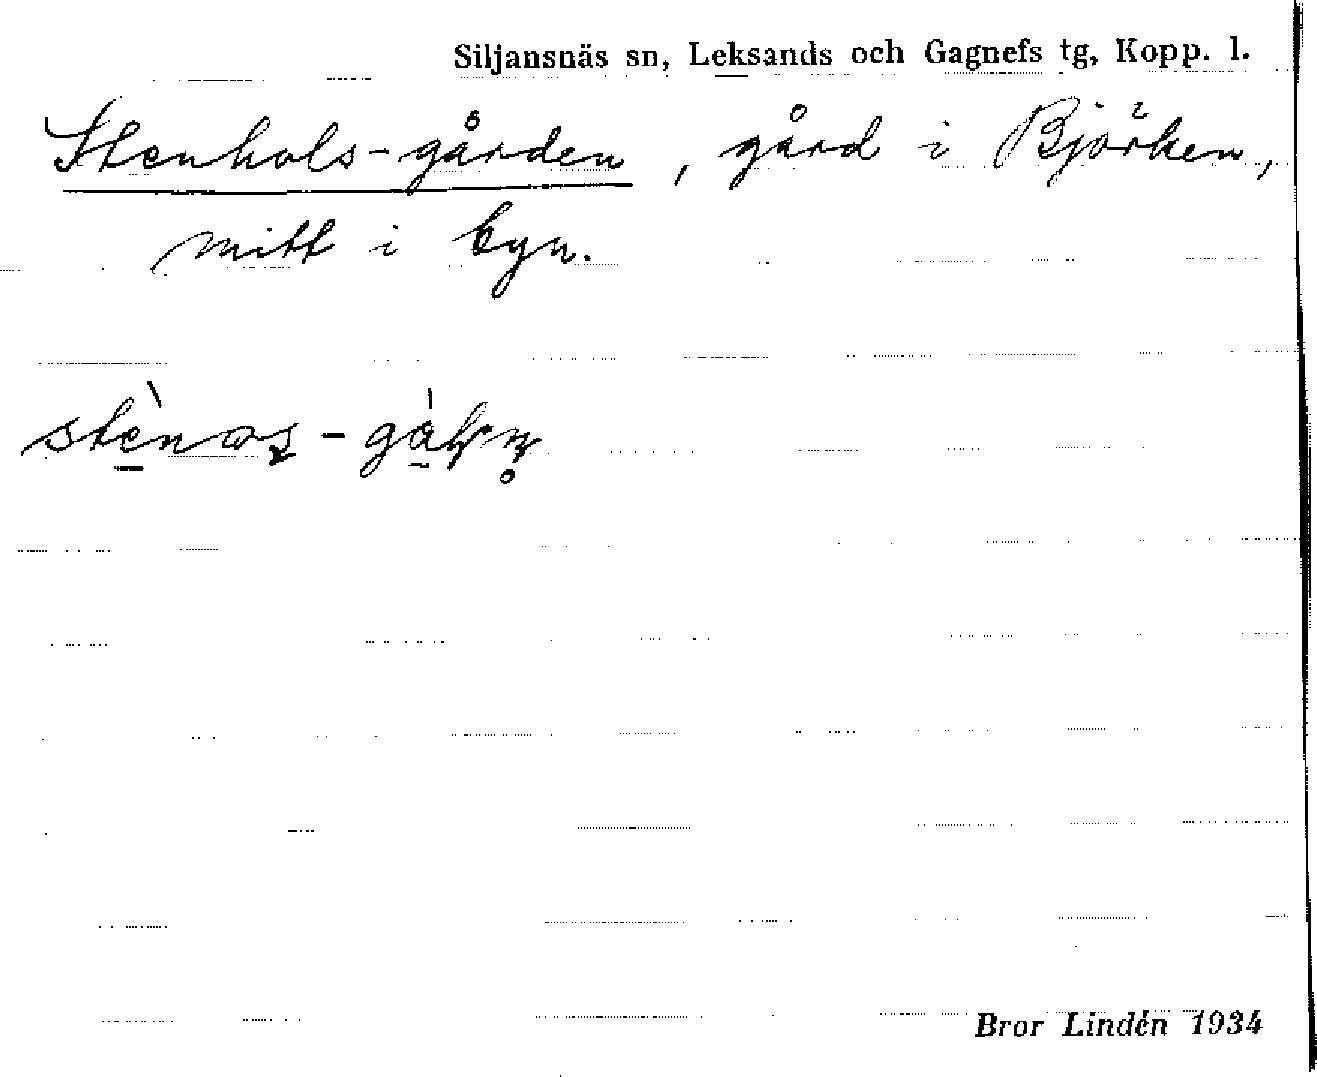 Siljansnäs sn, Leksands och Gagnefs tg, Kopp. l.
Stenhols-gården, gård i Björken,
mitt i byn.
Bror Lindén 1934